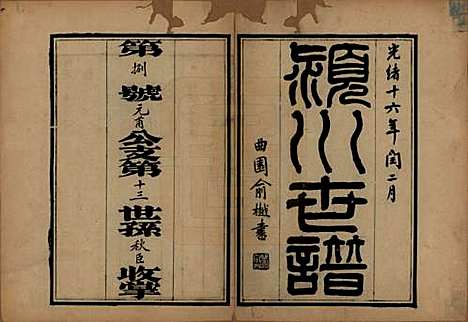 光緒十六年閏二月
潁川世譜
曲園俞樾書
第捌號元甫公支第十三世孫秋臣收掌